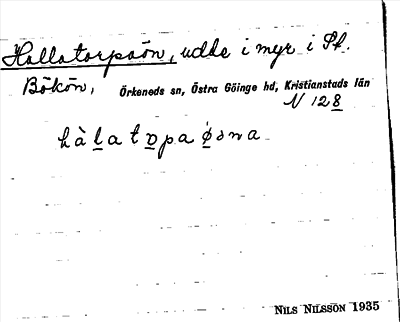 Hallatorpaön, udde i myr i St.
Bökön, Örkeneds sn, Östra Göinge hd, Kristianstads län
N 128
hàlatopaøsna
NILS NILSSON 1935